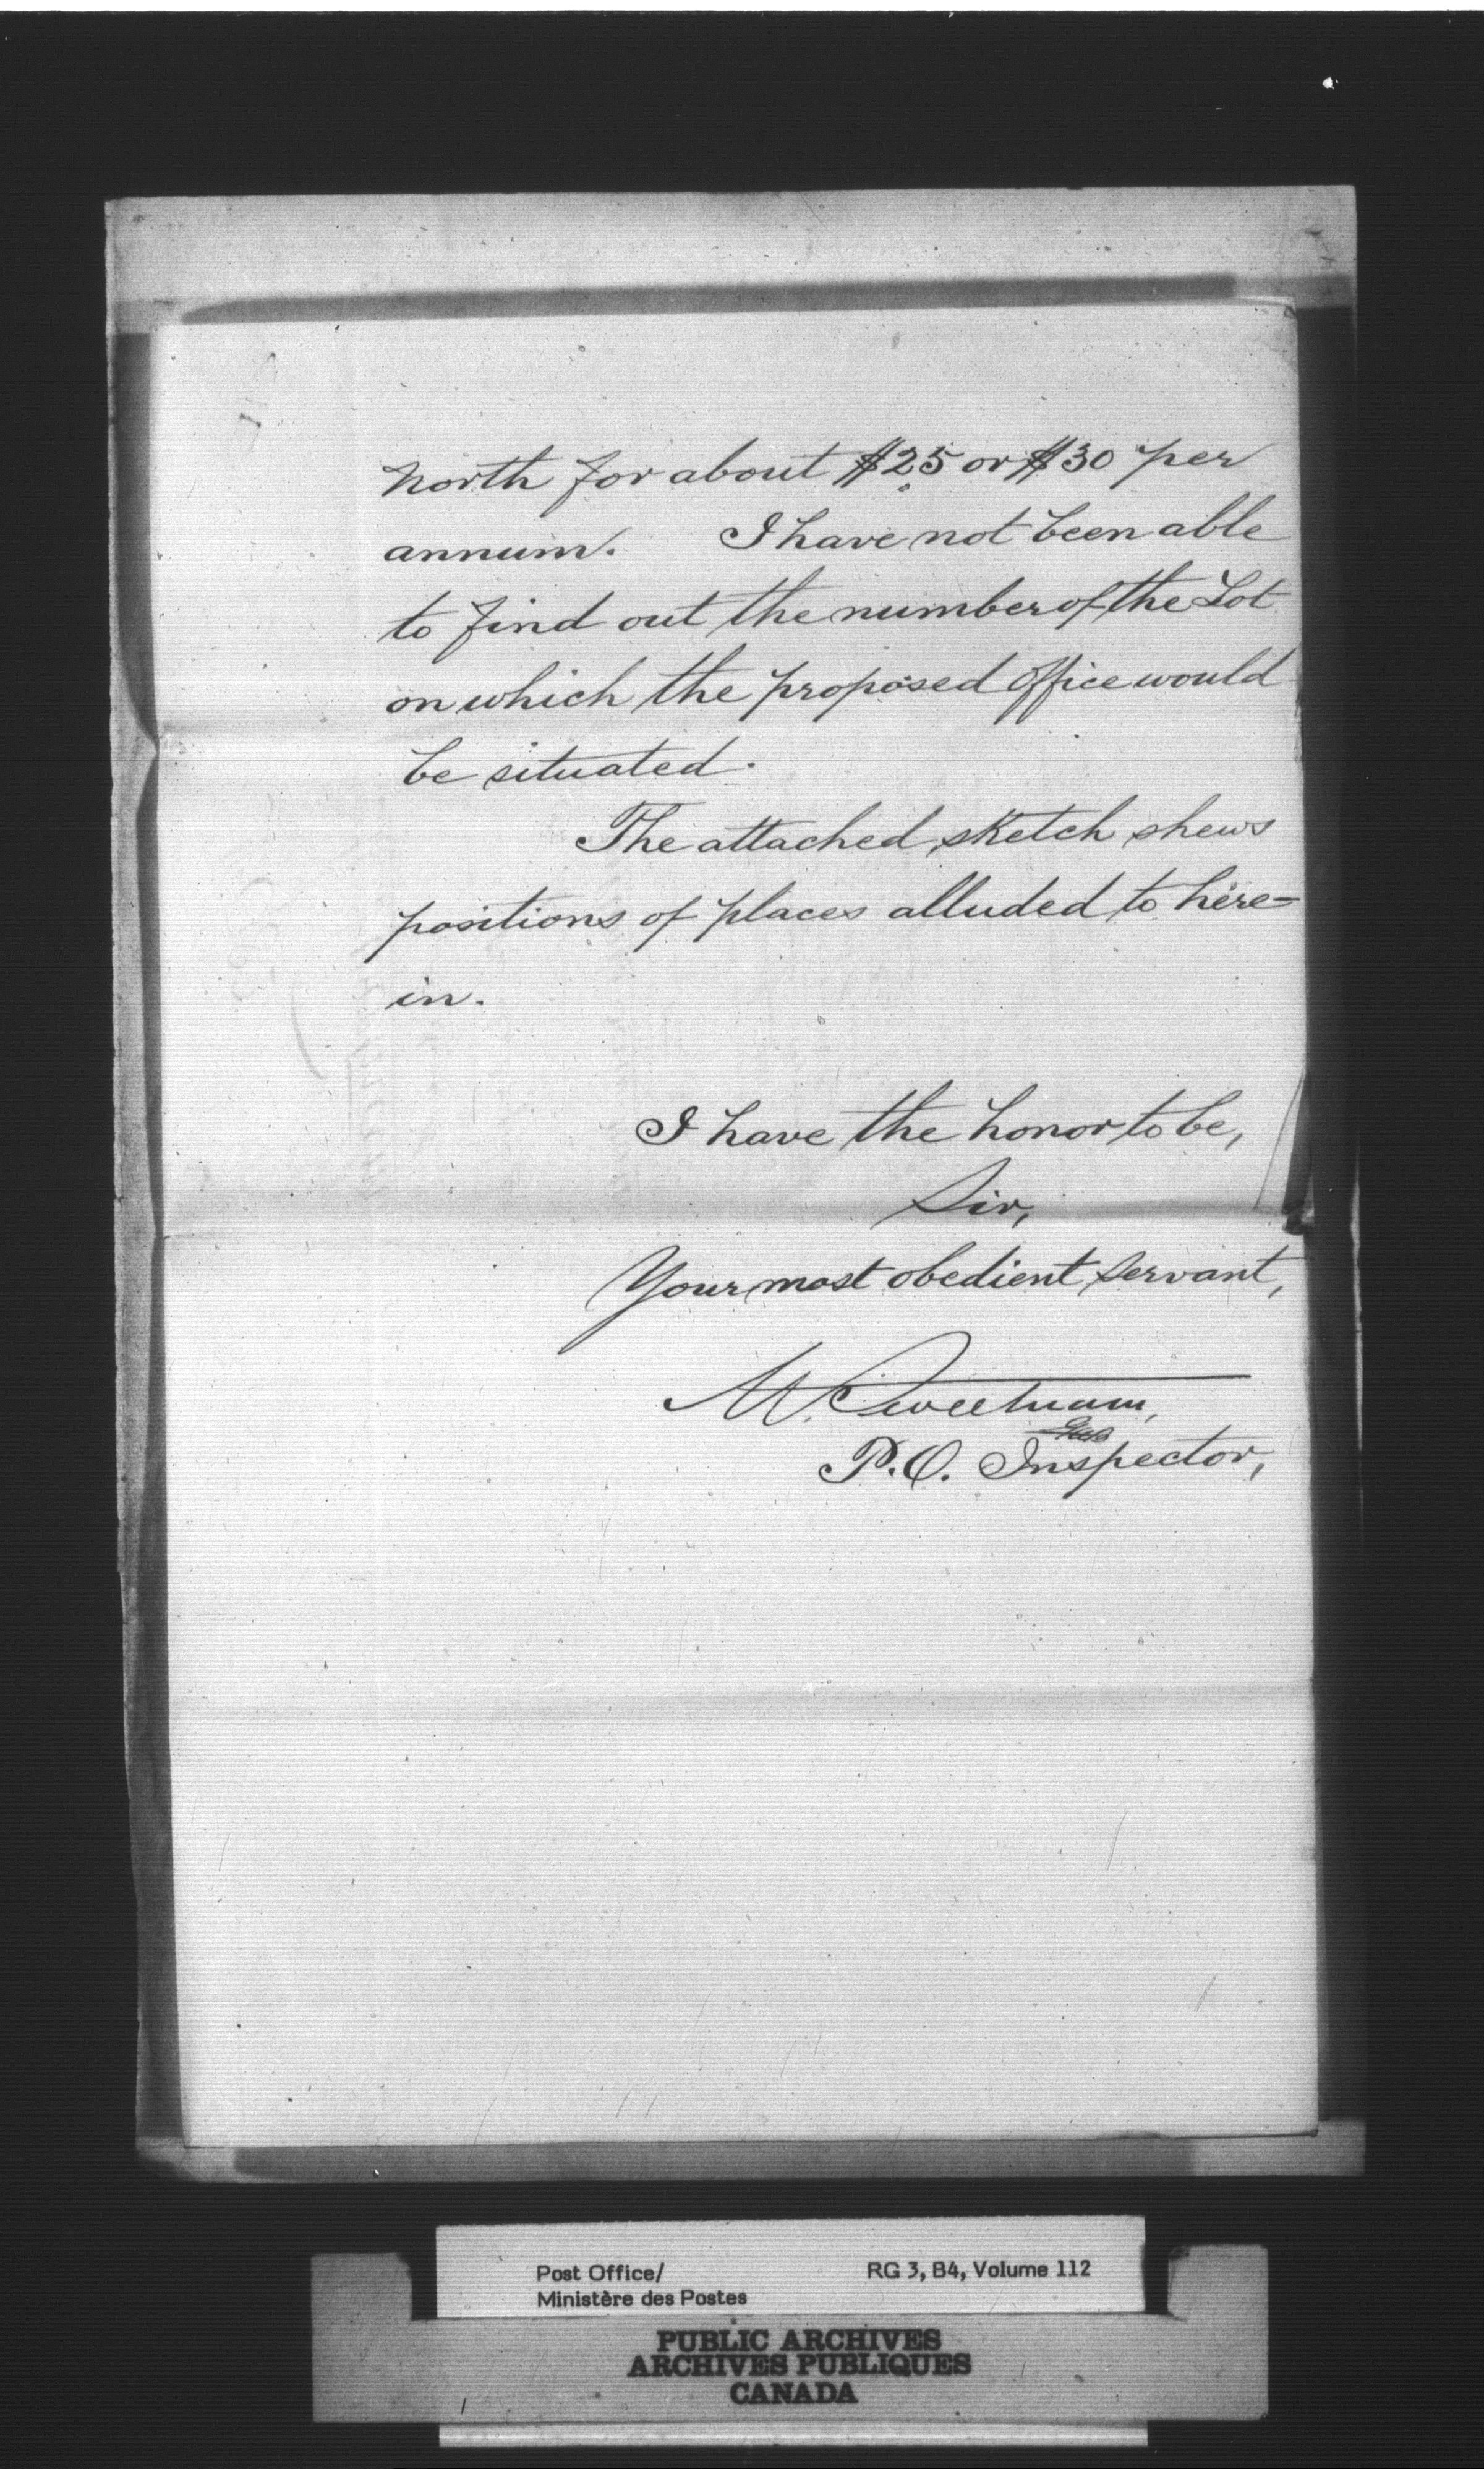 north for about $25 or $30 per
annum. I have not been able
to find out the number of the Lot
on which the proposed office would
be situated.
The attached sketch shews
positions of places alluded to here-
in.
I have the honor to be,
Sir,
Your most obedient servant,
M. Sweetnam,
P.O. Inspector,
Post Office/ RG 3, B4, Volume 112
Ministère des Postes
PUBLIC ARCHIVES
ARCHIVES PUBLIQUES
CANADA